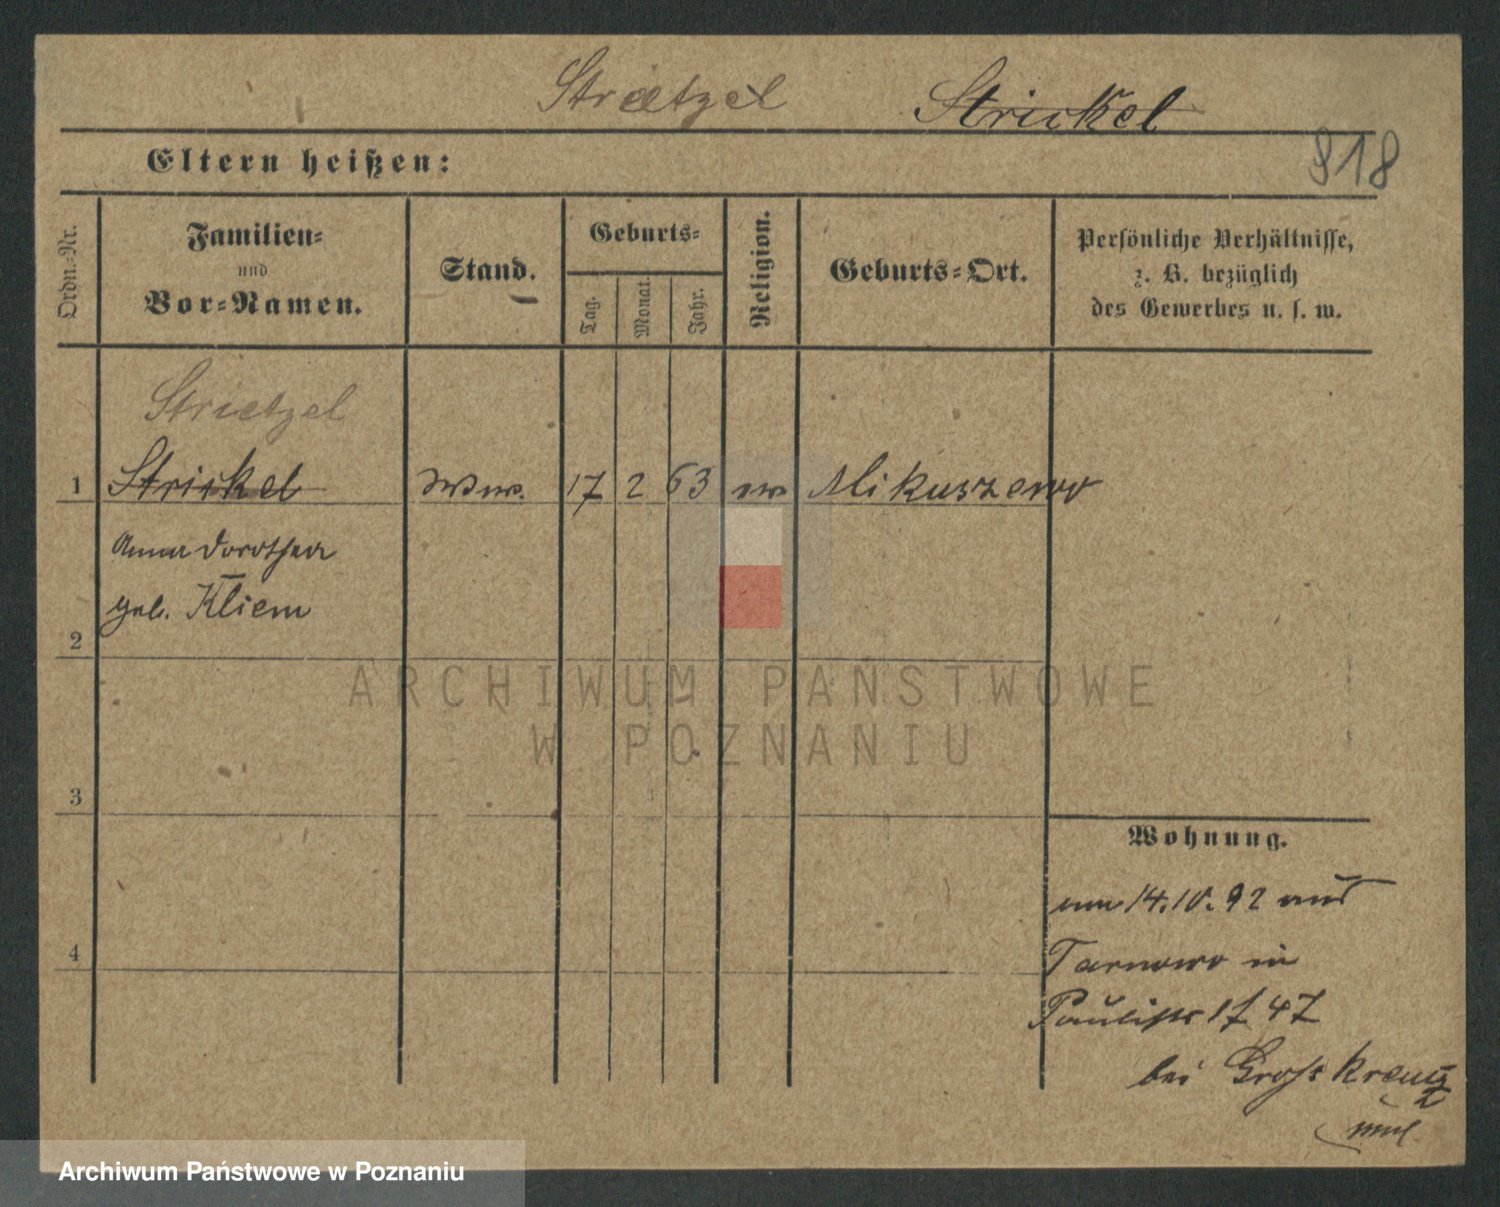 Strietzel Strickel
818
Eltern heißen:
Ordn.-Nr.
Familien-
und
Vor-Namen.
Stand.
Geburts-
Tag.
Monat.
Jahr.
Religion.
Geburts-Ort.
Persönliche Verhältnisse,
z. B. bezüglich
des Gewerbes u. s. w.
Strietzel
1 Strickel Wwe. 17 2 63 ev Mikuszewo
Anna Dorothea
geb. Kliem
2
ARCHIWUM PAŃSTWOWE
W POZNANIU
3
Wohnung.
14.10.92 aus
4
Tarnowo in
47
bei Gross kreutz
Archiwum Państwowe w Poznaniu